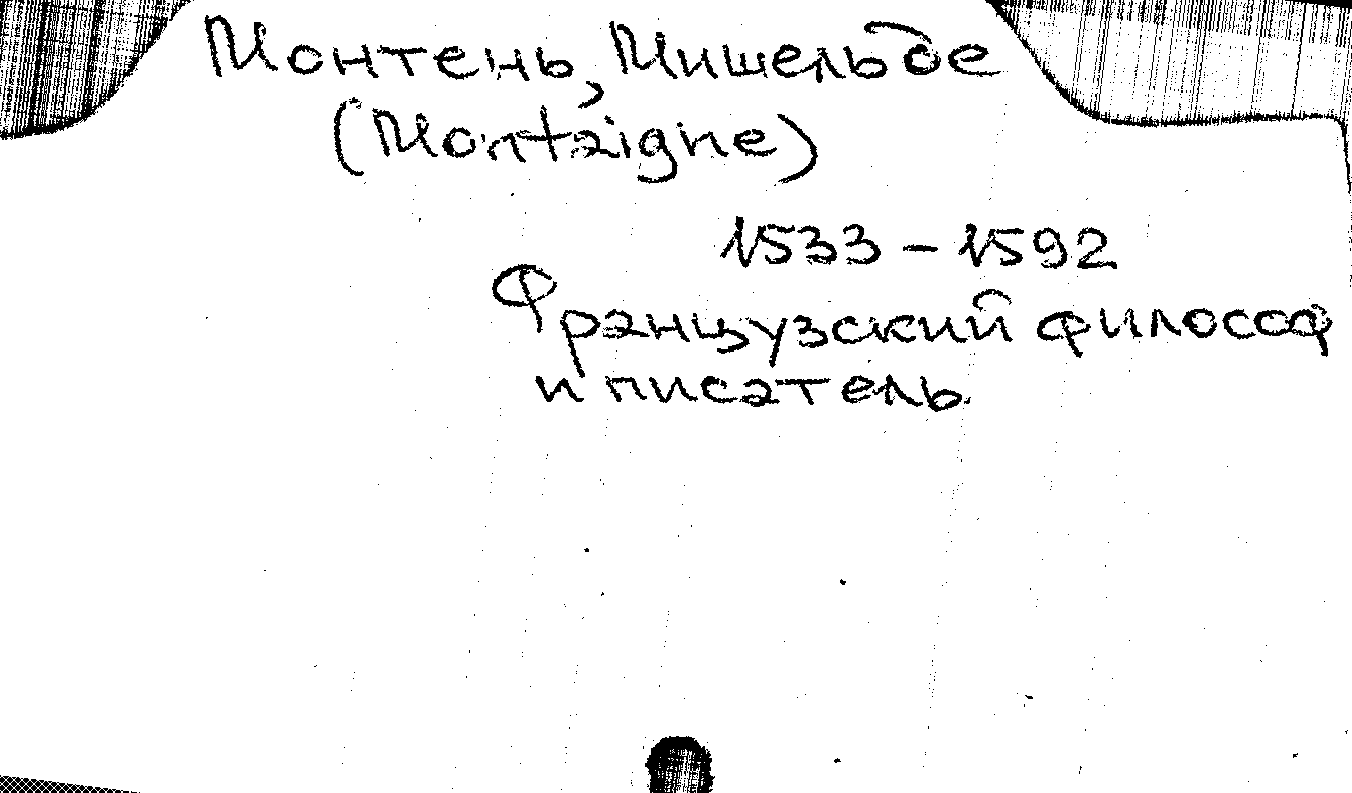 Монтень, Мишель де
(Montaigne)
1533 – 1592
Французский философ
и писатель.